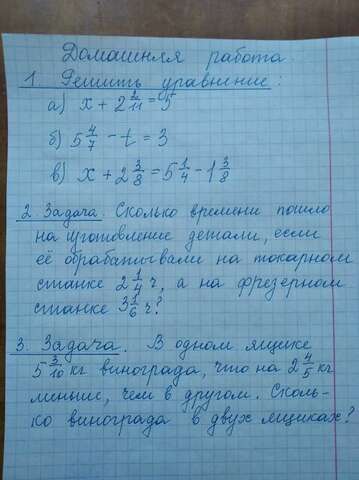 Домашняя работа.
1. Решить уравнение:
а) x + 2 1/11 = 5
б) 5 4/7 - t = 3
в) x + 2 3/8 = 5 1/4 - 1 3/8
2. Задача. Сколько времени пошло
на изготовление детали, если
её обрабатывали на токарном
станке 2 1/4 ч, а на фрезерном
станке 3 1/6 ч?
3. Задача. В одном ящике
5 3/10 кг винограда, что на 2 4/5 кг
меньше, чем в другом. Сколь-
ко винограда в двух ящиках?